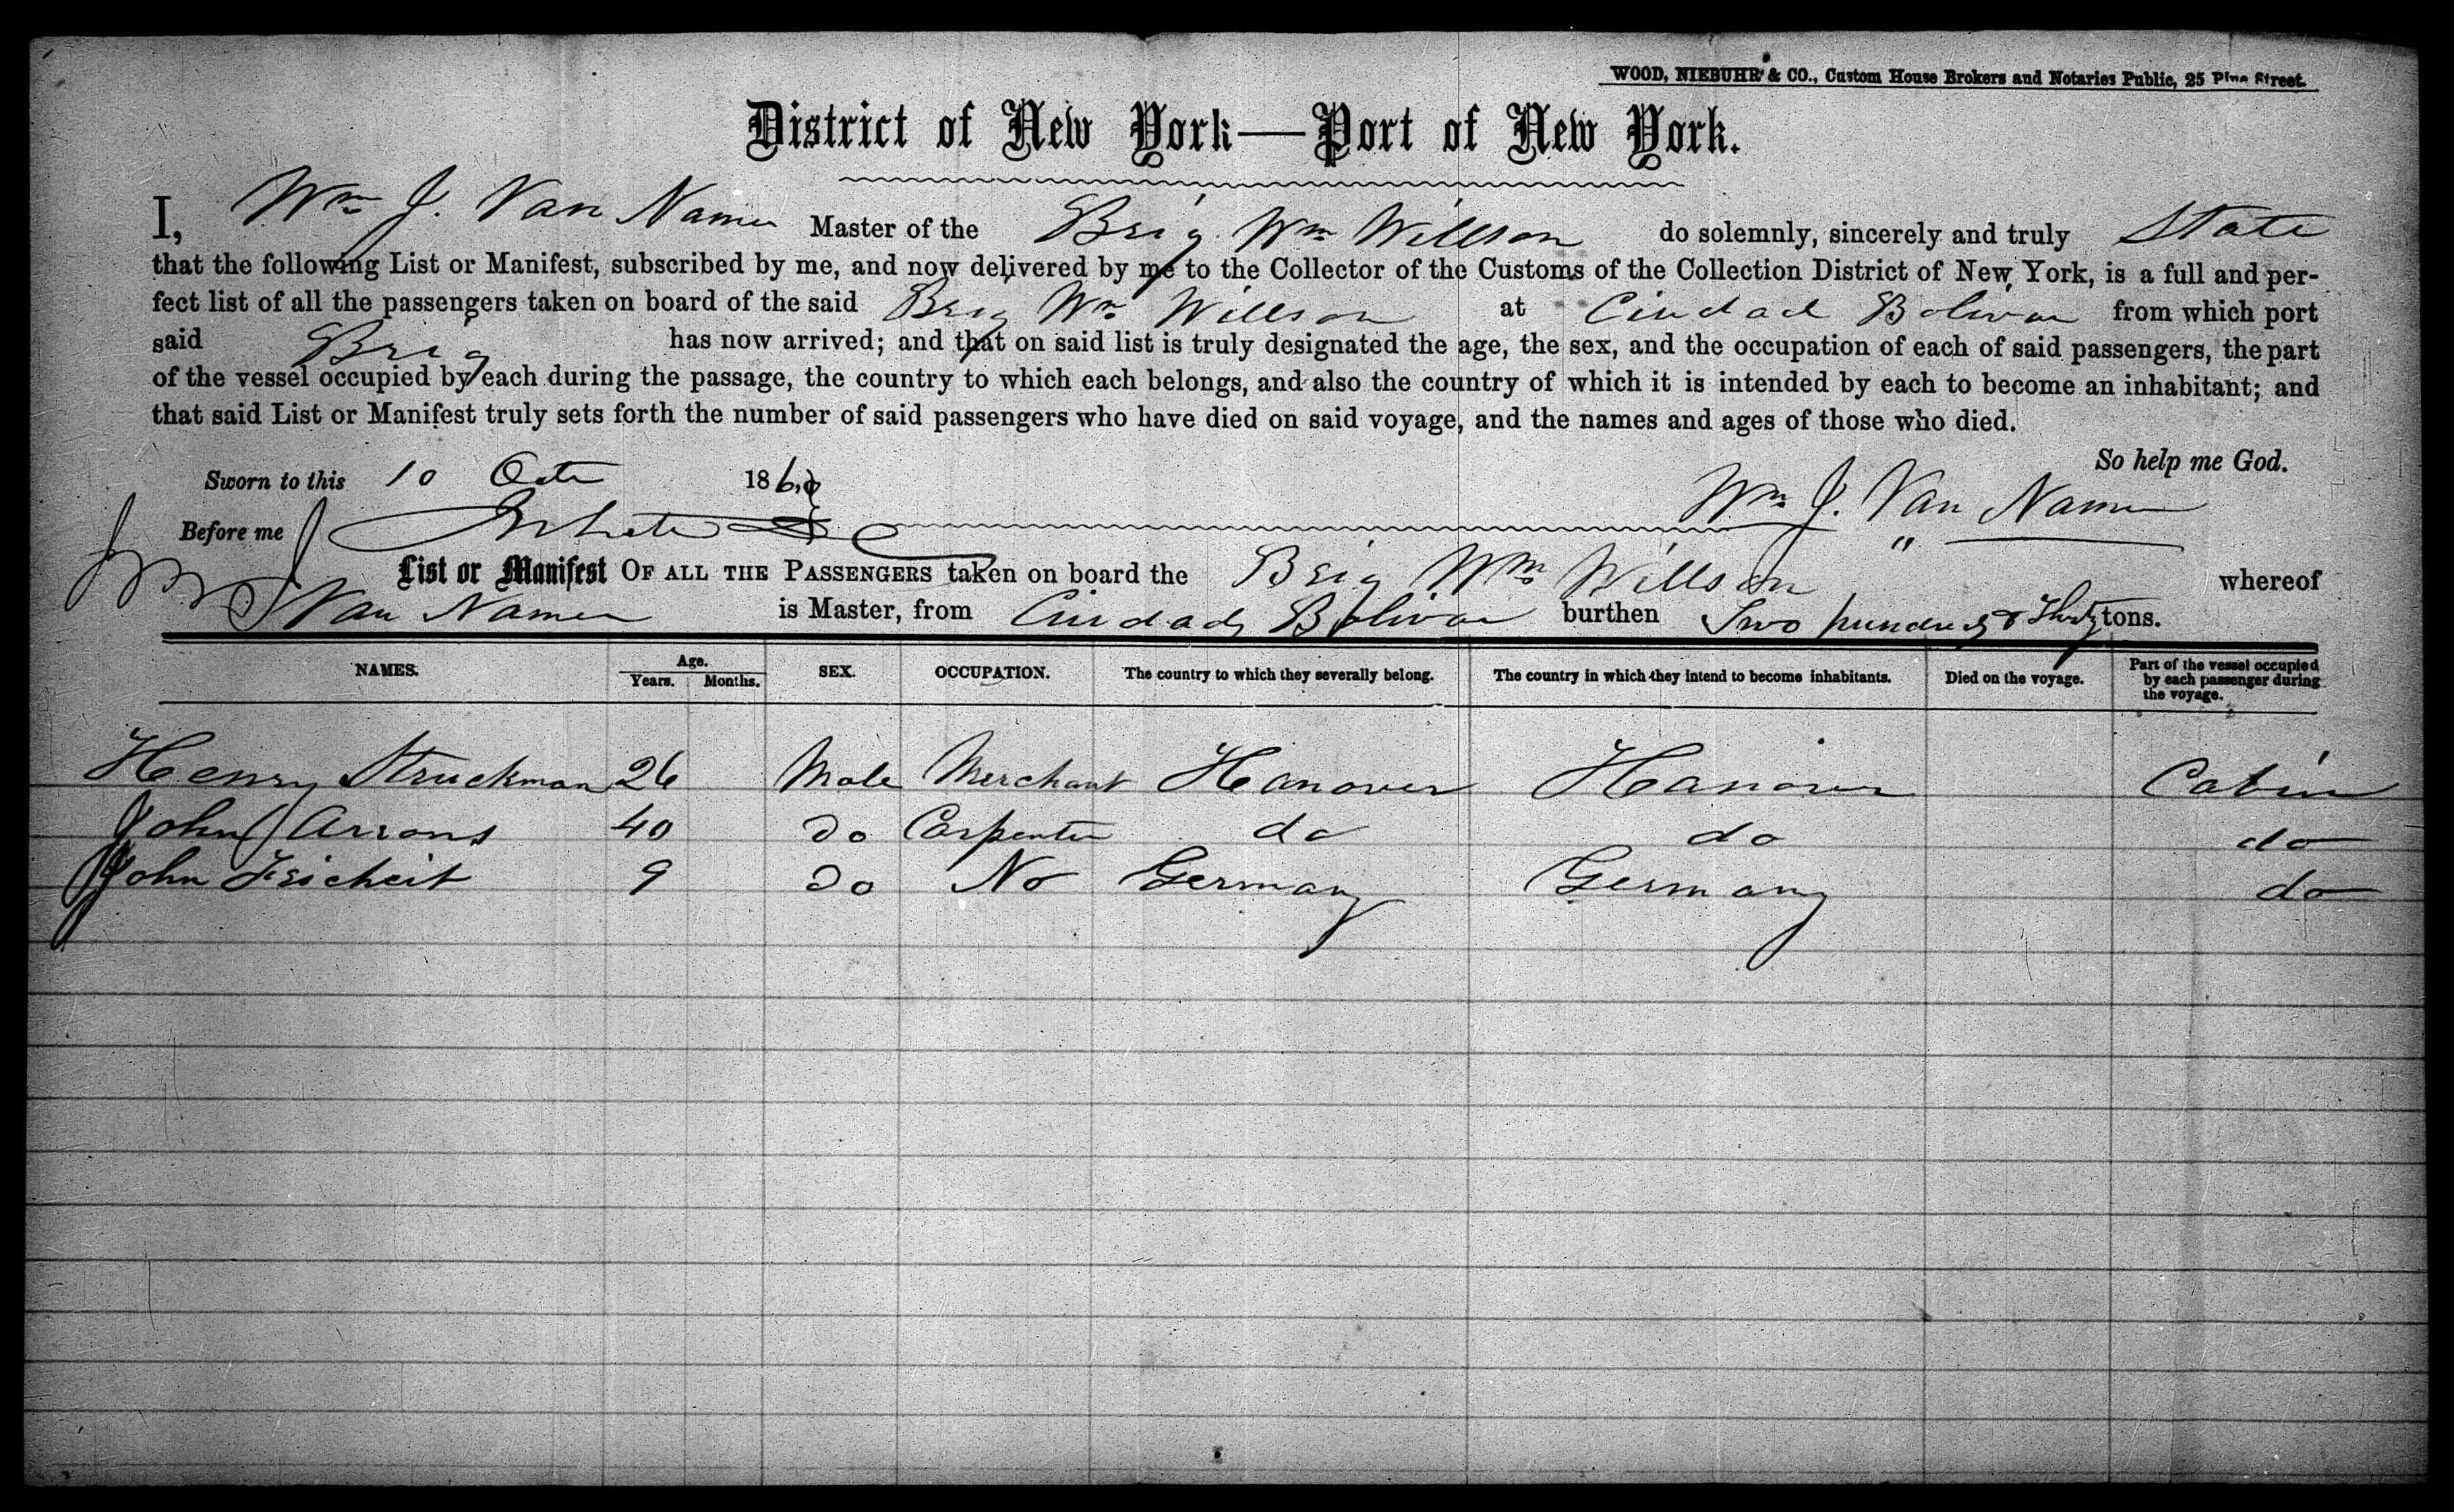 WOOD, NIEBUHR & CO., Custom House Brokers and Notaries Public, 25 Pine Street.
District of New York—Port of New York.
I, Wm J. Van Name Master of the Brig Wm Willson do solemnly, sincerely and truly State
that the following List or Manifest, subscribed by me, and now delivered by me to the Collector of the Customs of the Collection District of New York, is a full and per-
fect list of all the passengers taken on board of the said Brig Wm Willson at Ciudad Bolivar from which port
said Brig has now arrived; and that on said list is truly designated the age, the sex, and the occupation of each of said passengers, the part
of the vessel occupied by each during the passage, the country to which each belongs, and also the country of which it is intended by each to become an inhabitant; and
that said List or Manifest truly sets forth the number of said passengers who have died on said voyage, and the names and ages of those who died.
So help me God.
Sworn to this 10 Oct 186
Wm J. Van Name
Before me
List or Manifest OF ALL THE PASSENGERS taken on board the Brig Wm Willson whereof
Wm J Van Name is Master, from Ciudad Bolivar burthen Two hundred & Thirty tons.
NAMES. Age. Years. Months. SEX. OCCUPATION. The country to which they severally belong. The country in which they intend to become inhabitants. Died on the voyage. Part of the vessel occupied by each passenger during the voyage.
Henry Struckman 26 Male Merchant Hanover Hanover Cabin
John Arrons 40 do Carpenter do do do
John 9 do No Germany Germany do